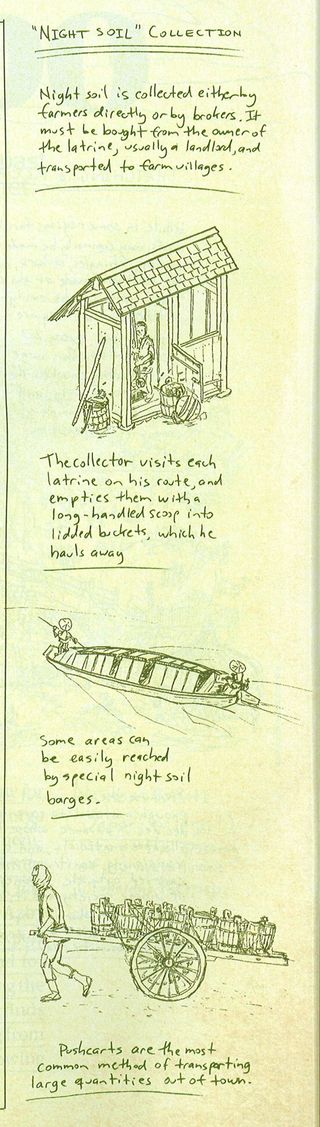 "NIGHT SOIL" COLLECTION
Night soil is collected either by
farmers directly or by brokers. It
must be bought from the owner of
the latrine, usually a landlord, and
transported to farm villages.
The collector visits each
latrine on his route, and
empties them with a
long-handled scoop into
lidded buckets, which he
hauls away
Some areas can
be easily reached
by special night soil
barges.
Pushcarts are the most
common method of transporting
large quantities out of town.